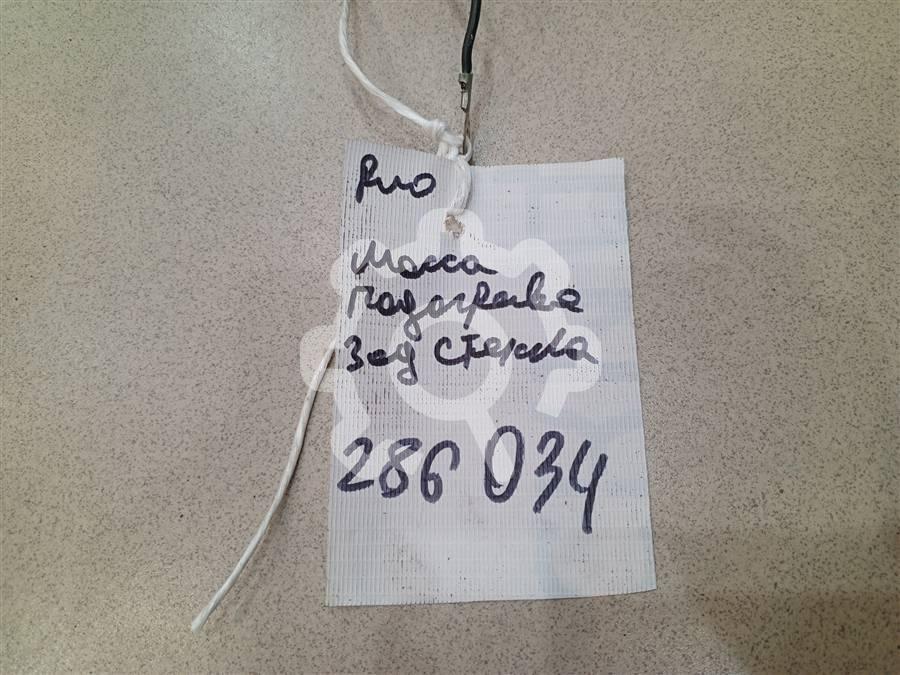 Рио
Масса
подогрева
Зад стекла
286 034